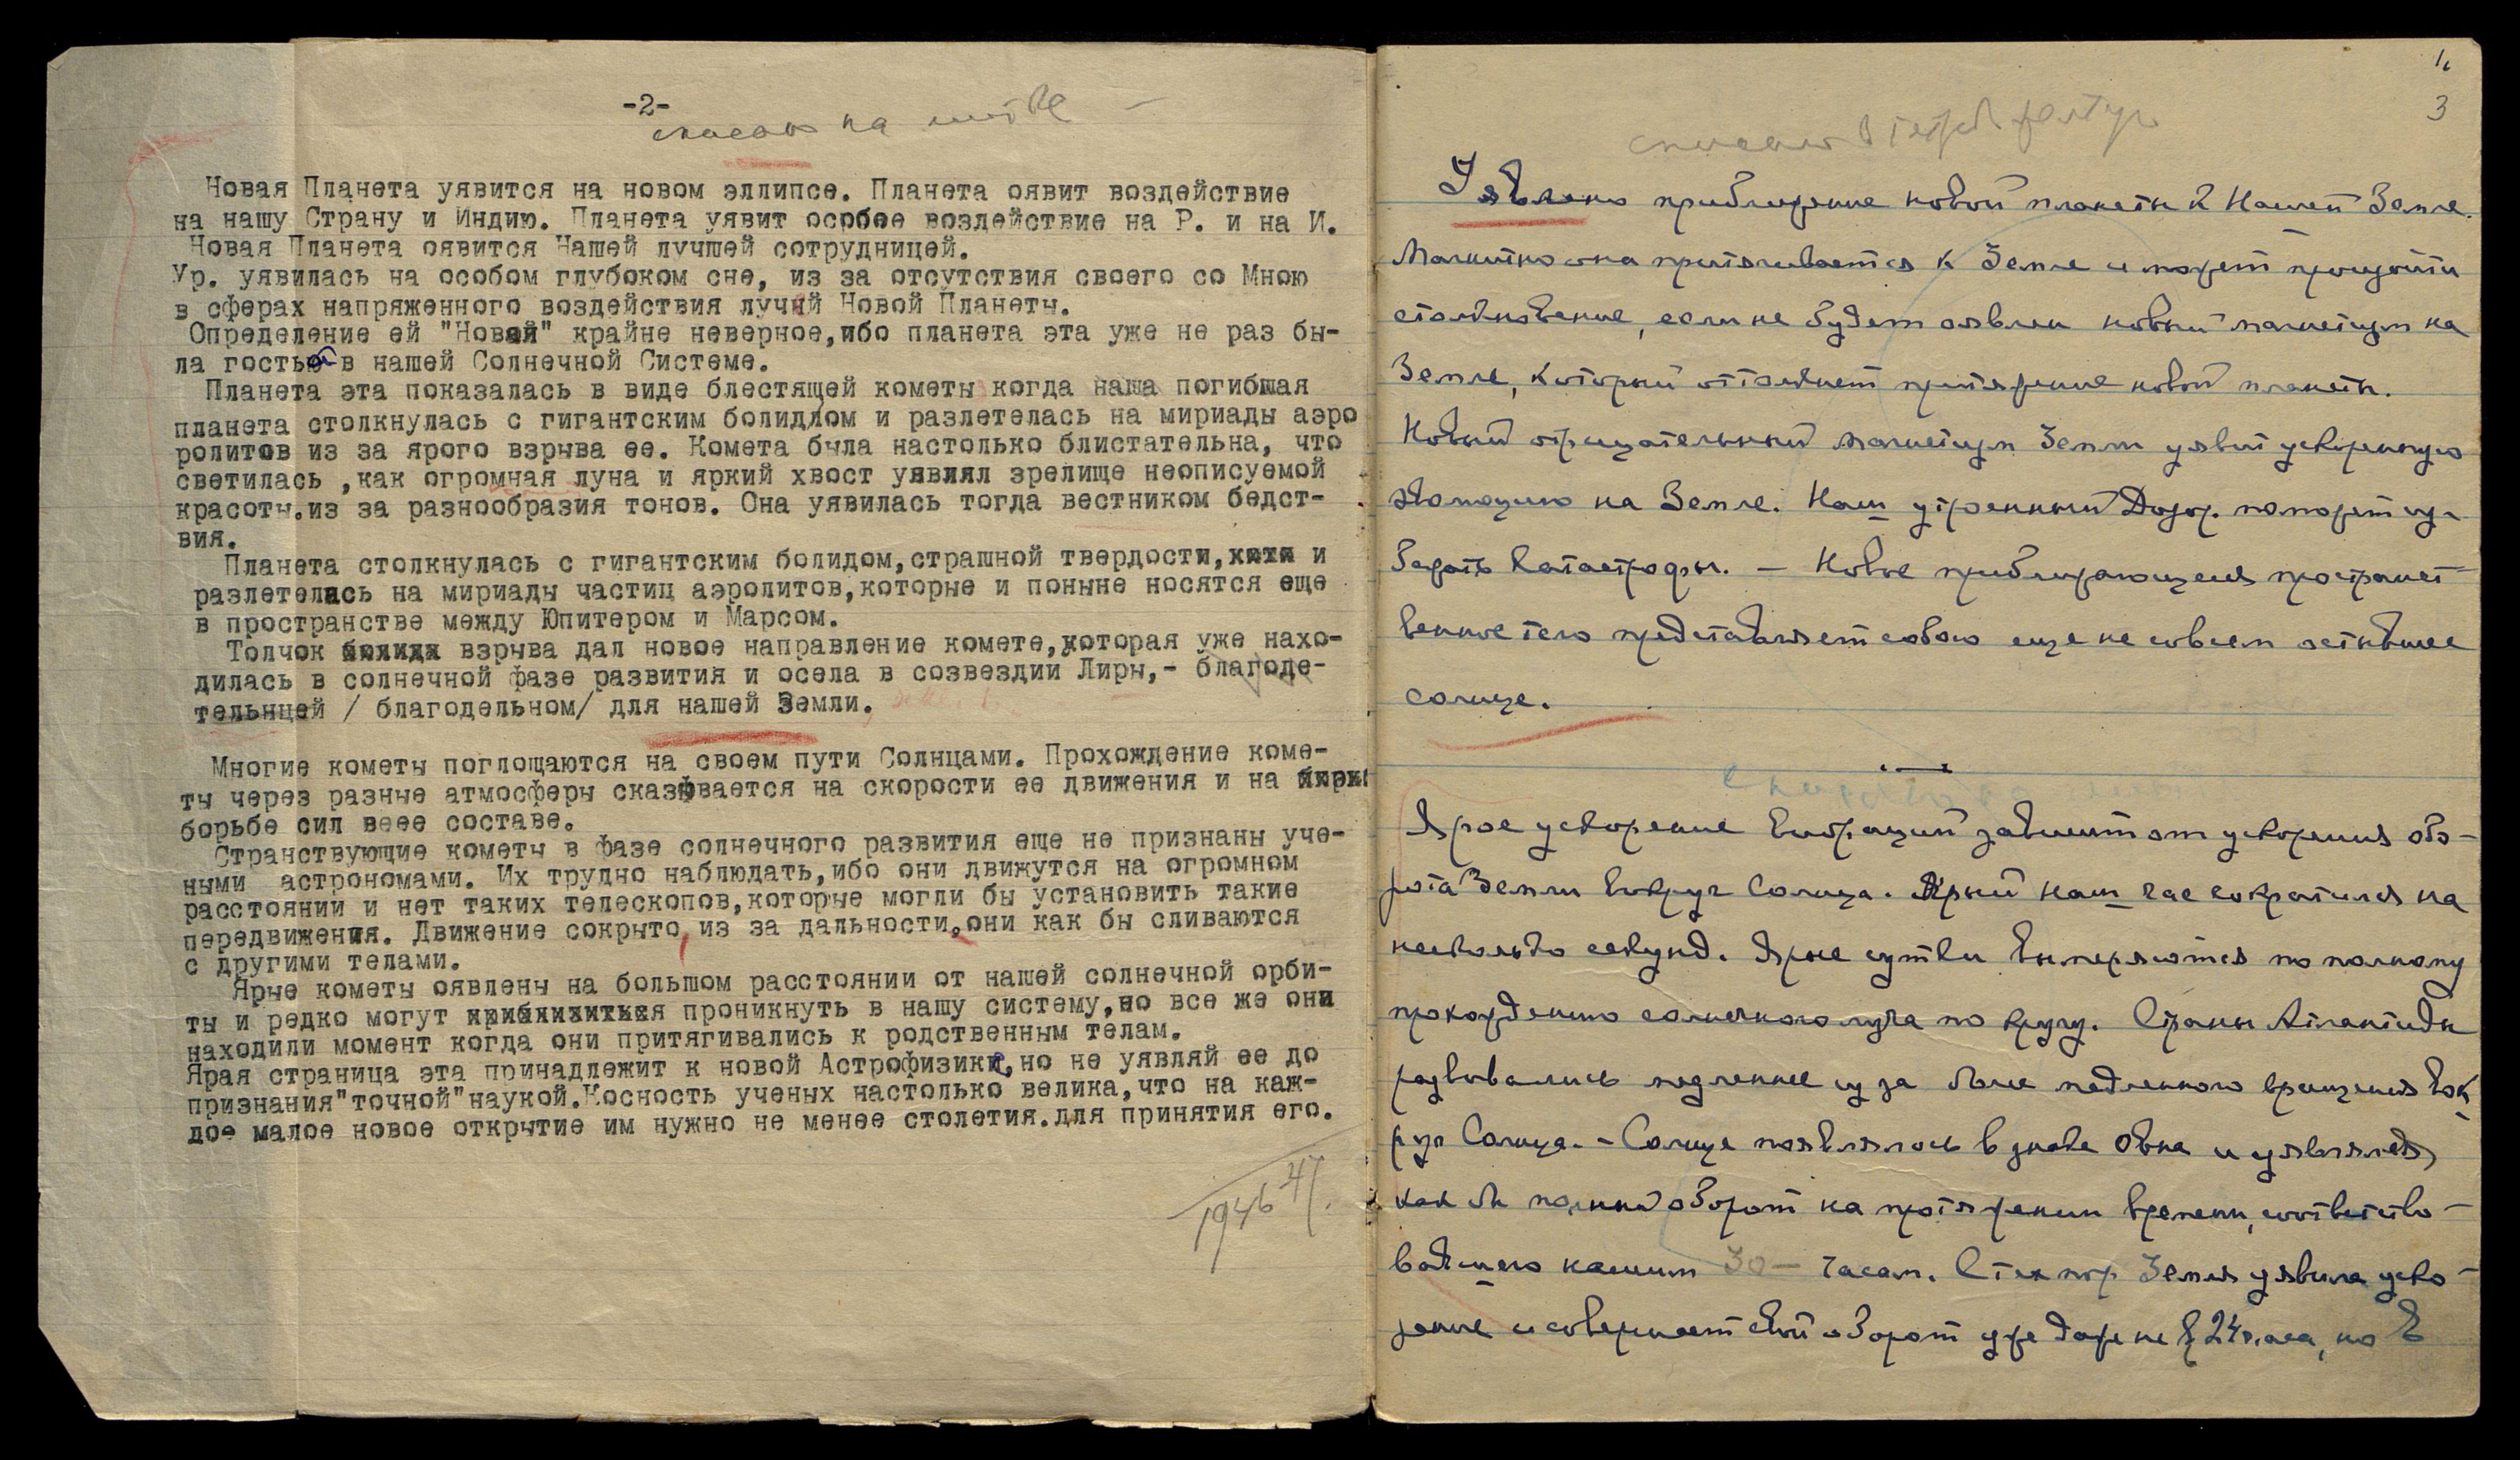 -2-
списано на
Новая Планета уявится на новом эллипсе. Планета оявит воздействие
на нашу Страну и Индию. Планета уявит особое воздействие на Р. и на И.
Новая Планета оявится Нашей лучшей сотрудницей.
Ур. уявилась на особом глубоком сне, из за отсутствия своего со Мною
в сферах напряженного воздействия лучей Новой Планеты.
Определение ей "Новай" крайне неверное,ибо планета эта уже не раз бы-
ла гостьей в нашей Солнечной Системе.
Планета эта показалась в виде блестящей кометы когда наша погибшая
планета столкнулась с гигантским болидлом и разлетелась на мириады аэро
ролитов из за ярого взрыва ее. Комета была настолько блистательна, что
светилась ,как огромная луна и яркий хвост уявлял зрелище неописуемой
красоты.из за разнообразия тонов. Она уявилась тогда вестником бедст-
вия.
Планета столкнулась с гигантским болидом,страшной твердости,хотя и
разлетелась на мириады частиц аэролитов,которые и поныне носятся еще
в пространстве между Юпитером и Марсом.
Толчок болида взрыва дал новое направление комете,которая уже нахо-
дилась в солнечной фазе развития и осела в созвездии Лиры,- благоде-
тельнцей / благодельном/ для нашей Земли.
Многие кометы поглощаются на своем пути Солнцами. Прохождение коме-
ты через разные атмосферы сказывается на скорости ее движения и на
борьбе сил веее составе.
Странствующие кометы в фазе солнечного развития еще не признаны уче-
ными астрономами. Их трудно наблюдать,ибо они движутся на огромном
расстоянии и нет таких телескопов,которые могли бы установить такие
передвижения. Движение сокрыто, из за дальности,они как бы сливаются
с другими телами.
Ярые кометы оявлены на большом расстоянии от нашей солнечной орби-
ты и редко могут приблизиться проникнуть в нашу систему,но все же они
находили момент когда они притягивались к родственным телам.
Ярая страница эта принадлежит к новой Астрофизике,но не уявляй ее до
признания"точной"наукой.Косность ученых настолько велика,что на каж-
дое малое новое открытие им нужно не менее столетия.для принятия его.
1946 47.
3
списано в
Уявлено приближение новой планеты к Нашей Земле.
Магнитно она притягивается к Земле и может произойти
столкновение, если не будет оявлен новый магнетизм на
Земле, который оттолкнет притяжение новой планеты.
Новый отрицательный магнетизм Земли уявит ускоренную
эволюцию на Земле. Наш утроенный Дозор поможет из-
бежать катастрофы. — Новое приближающееся пространст-
венное тело представляет собою еще не совсем остывшее
солнце.
Ярое ускорение вибраций зависит от ускорения обо-
рота Земли вокруг Солнца. Ярый наш час сократился на
несколько секунд. Ярые сутки вымеряются по полному
прохождению солнечного луча по кругу. Страны Атлантиды
развивались медленнее из за более медленного вращения вок
руг Солнца. - Солнце появлялось в знаке Овна и уявлялся
как бы полный оборот на протяжении времени, соответство-
вавшего нашим 30 — часам. С тех пор Земля уявила уско-
рение и совершает свой оборот уже даже не в 24 часа, но в